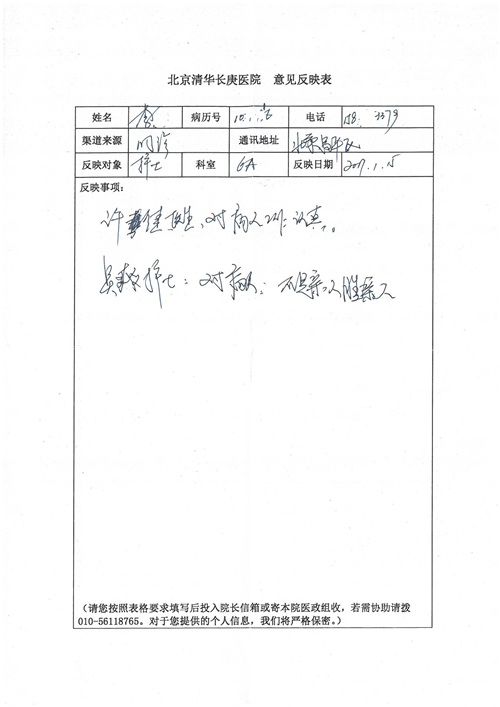 北京清华长庚医院 意见反映表
姓名 李 病历号 电话 3379
渠道来源 门诊 通讯地址 北京昌平区
反映对象 护士 科室 6A 反映日期 2017.1.15
反映事项:
许 佳医生,对病人工作认真。
吴 护士:对病人:不是亲人胜亲人
(请您按照表格要求填写后投入院长信箱或寄本院医政组收,若需协助请拨
010-56118765。对于您提供的个人信息,我们将严格保密。)